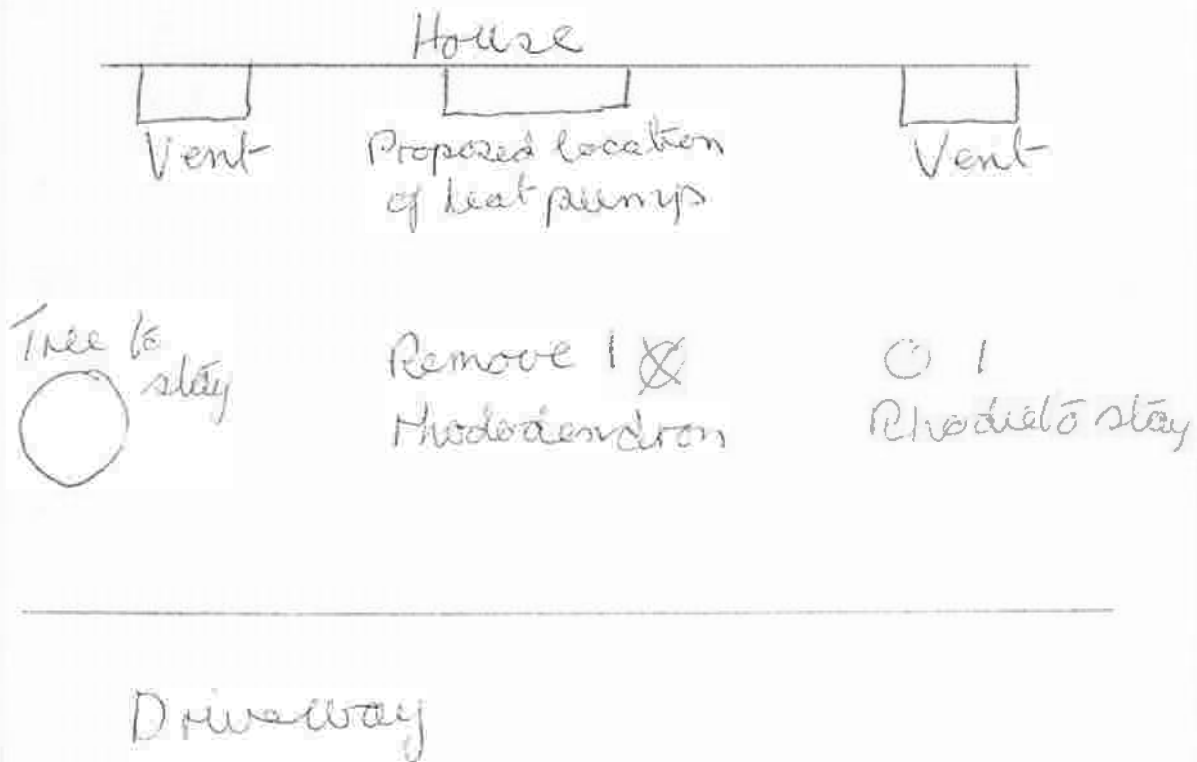 House
Vent
Proposed location
of heat pumps
Vent
Tree to
stay
Remove 1
rhododendron
1
Rhodie to stay
Driveway